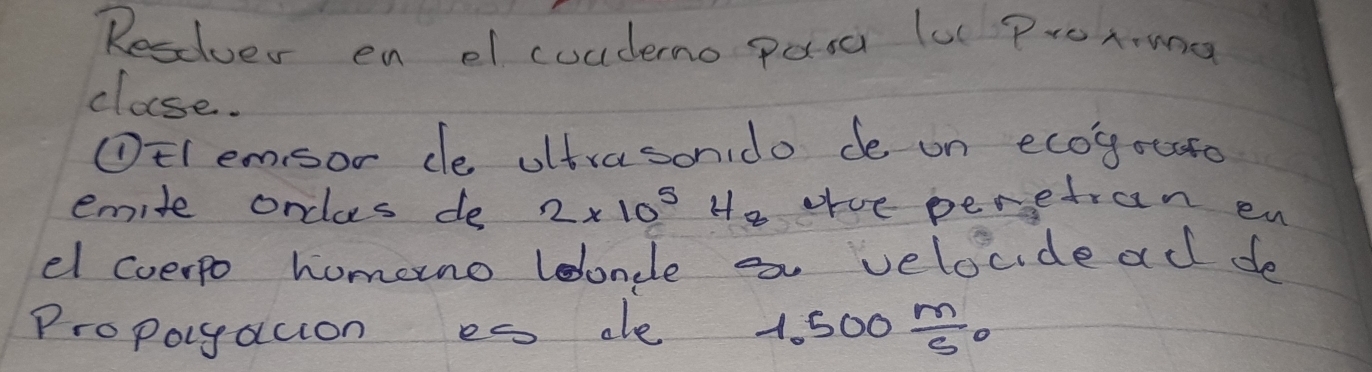 Resolver en el cuaderno para la Proxima
clase.
① El emisor de ultrasonido de un ecógrafo
emite ondas de 2x10⁵ Hz que penetran en
el cuerpo humano donde su velocidad de
Propagacion es de 1.500 m/s.